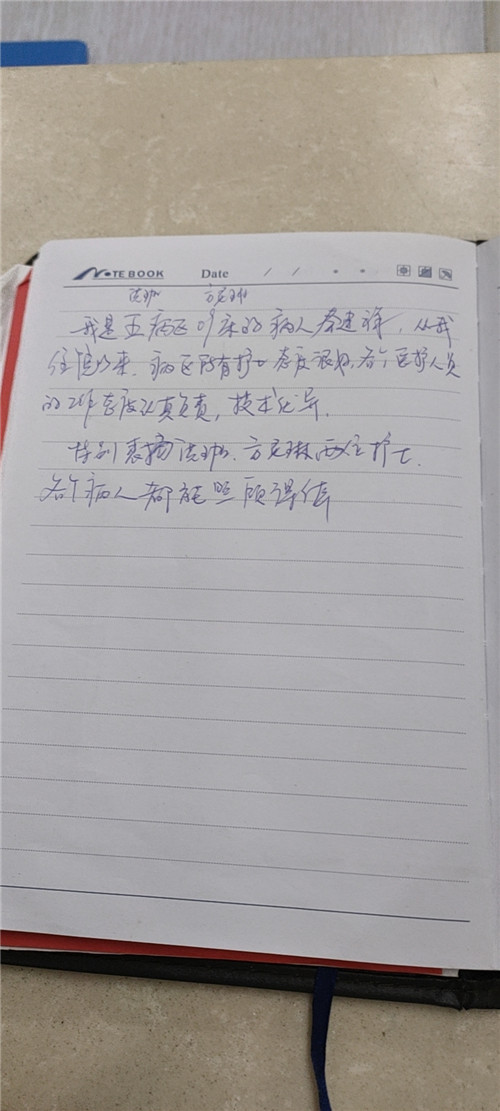 NOTEBOOK Date / /
我是五病区 床的病人秦建锋，从我
住院以来，病区所有护士态度很好，各个医护人员
的工作态度认真负责，技术优异。
特别表扬 、方 琳两位护士，
各个病人都能照顾得